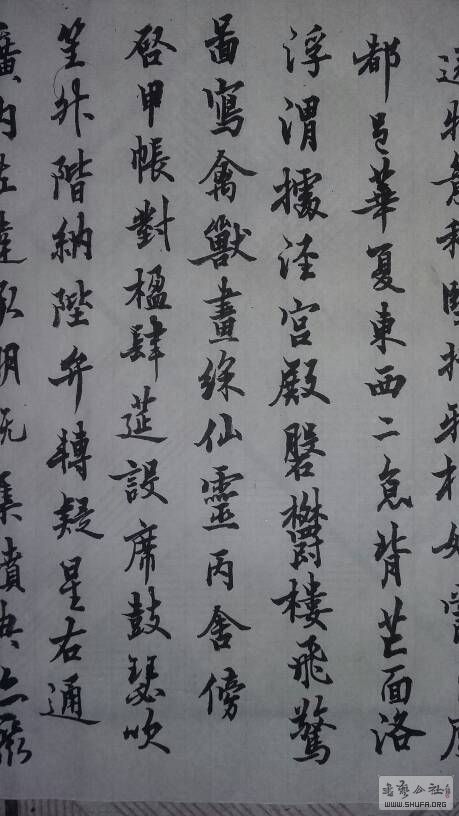 逐物意移堅持雅操好爵自縻
都邑華夏東西二京背芒面洛
浮渭據涇宮殿磐鬱樓飛驚
圖寫禽獸畫綵仙靈丙舍傍
啓甲帳對楹肆筵設席鼓瑟吹
笙升階納陛弁轉疑星右通
廣內左達承明既集墳典亦聚
WWW.SHUFA.ORG